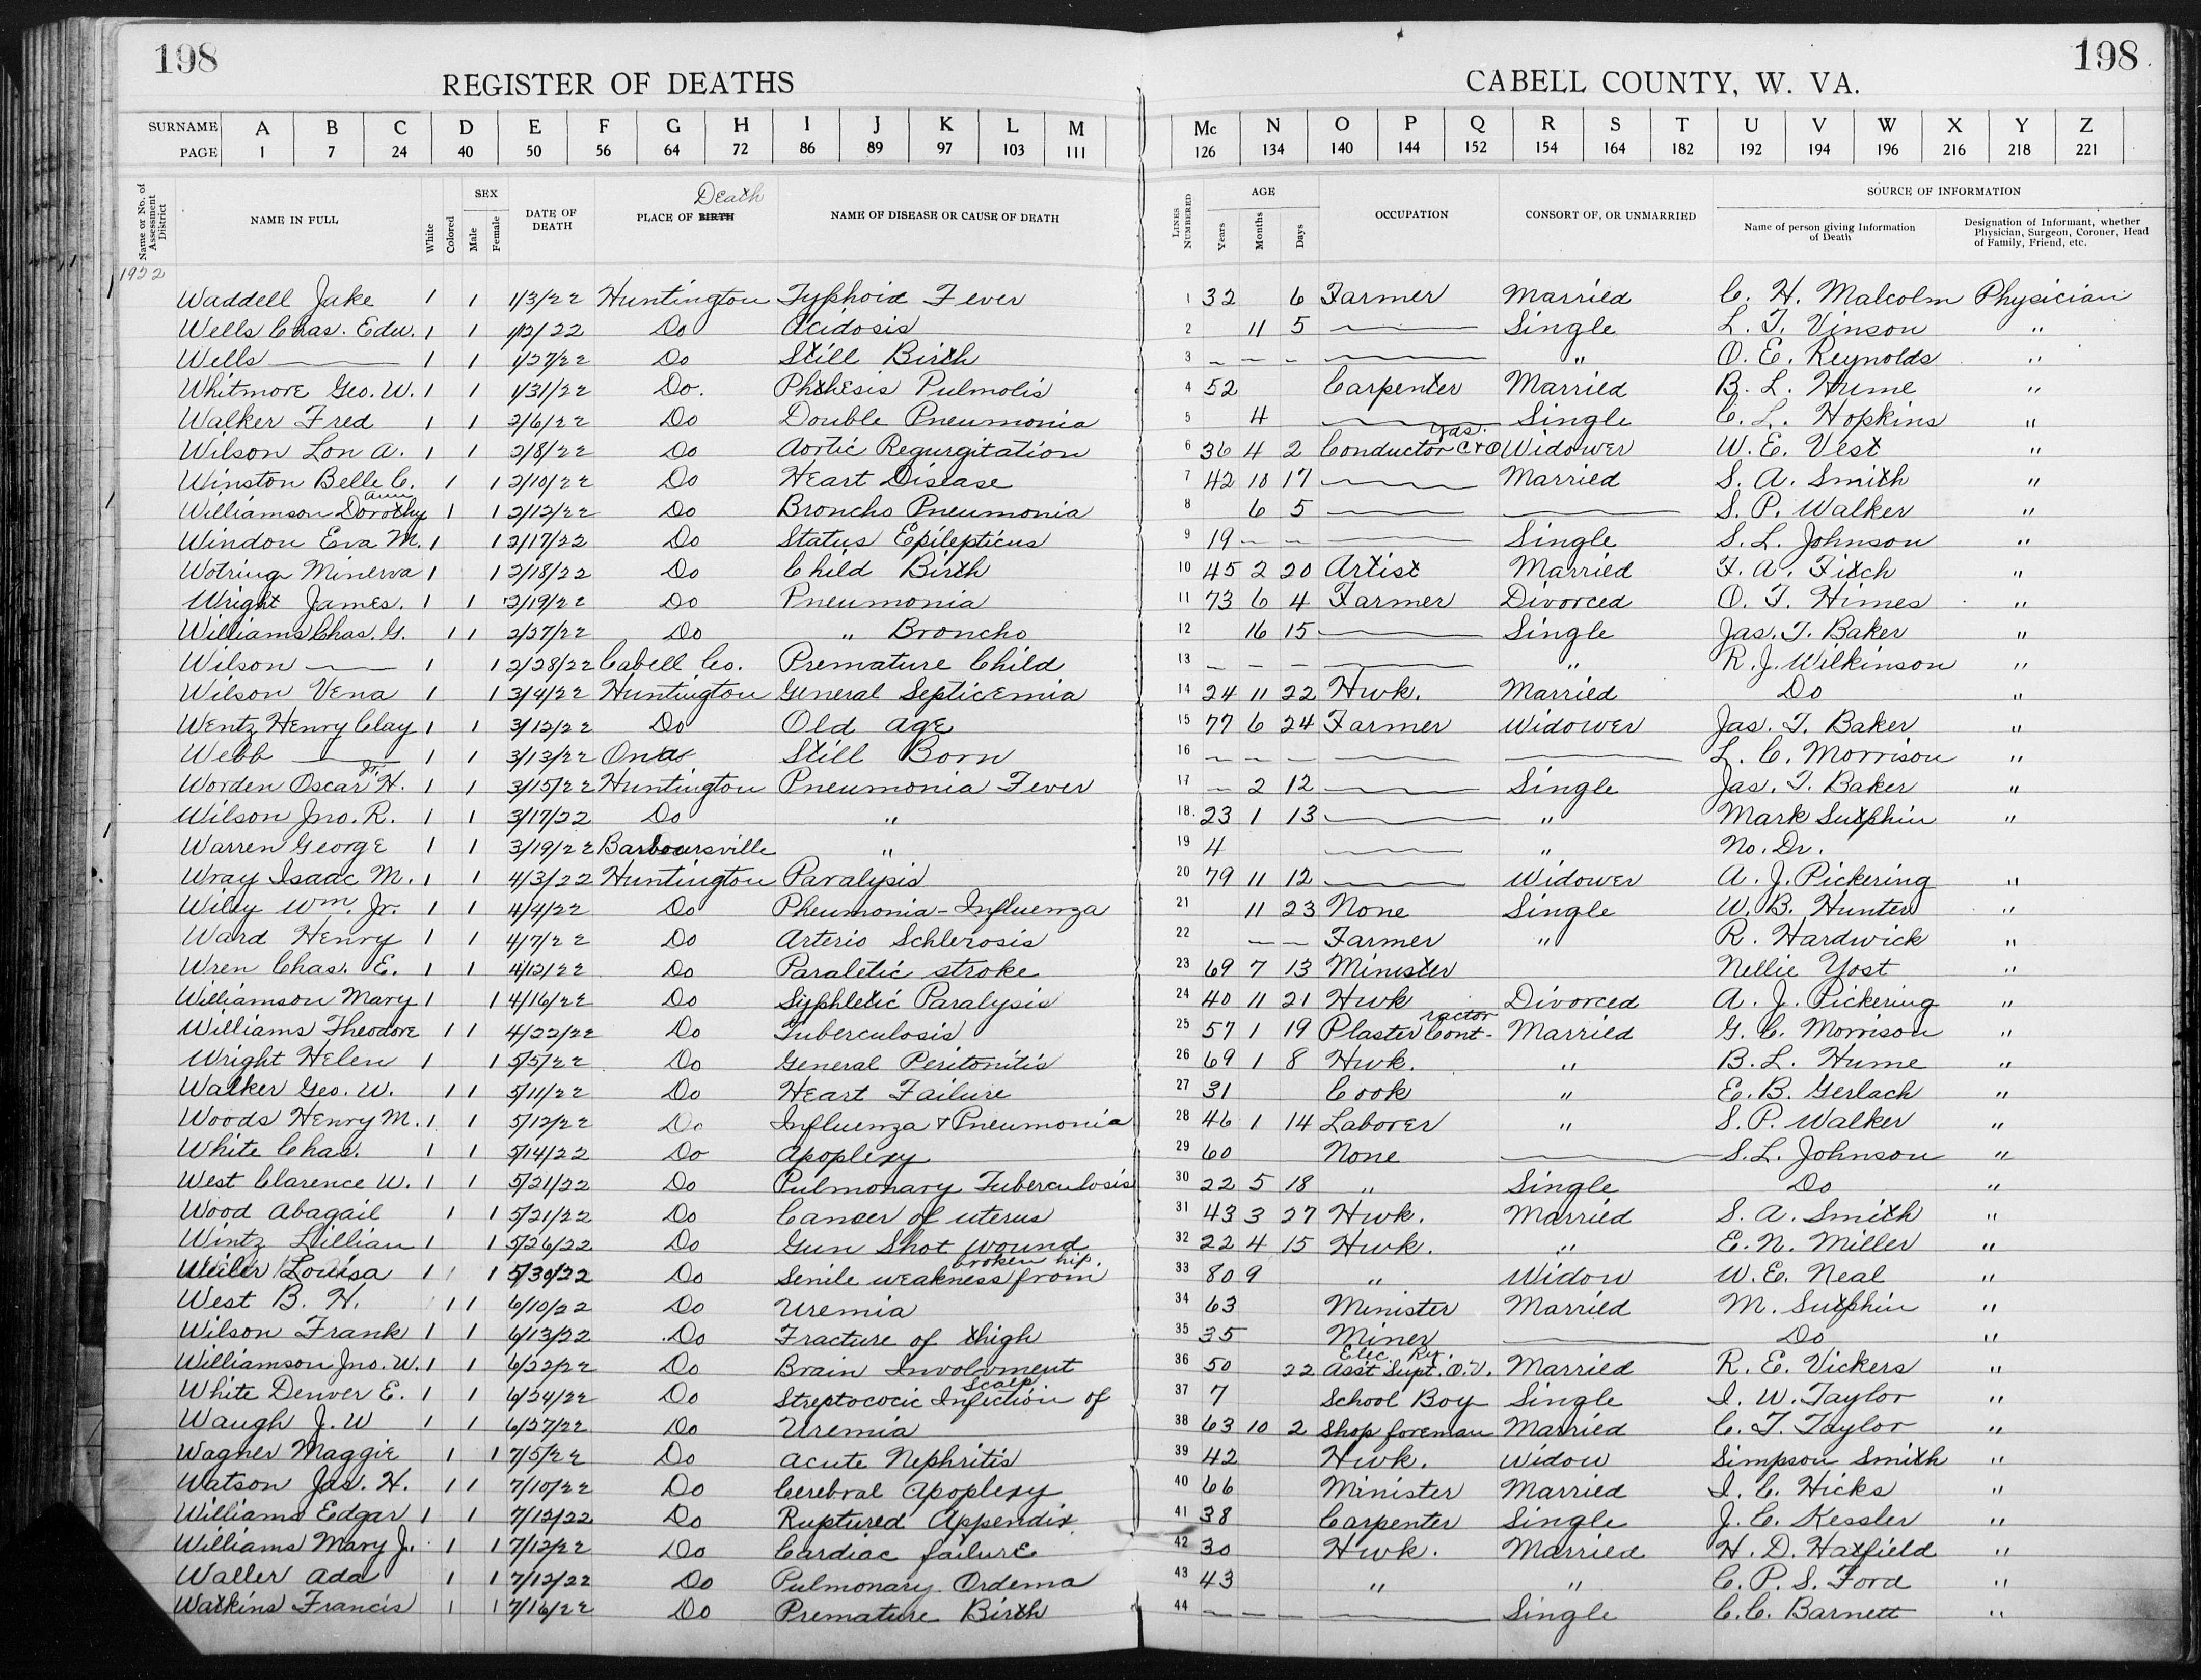 198
198
REGISTER OF DEATHS
CABELL COUNTY, W. VA.
SURNAME A B C D E F G H I J K L M Mc N O P Q R S T U V W X Y Z
PAGE 1 7 24 40 50 56 64 72 86 89 97 103 111 126 134 140 144 152 154 164 182 192 194 196 216 218 221
Name or No. of Assessment District NAME IN FULL White Colored SEX Male Female DATE OF DEATH PLACE OF BIRTH Death NAME OF DISEASE OR CAUSE OF DEATH LINES NUMBERED AGE Years Months Days OCCUPATION CONSORT OF, OR UNMARRIED SOURCE OF INFORMATION Name of person giving Information of Death Designation of Informant, whether Physician, Surgeon, Coroner, Head of Family, Friend, etc.
1922
Waddell Jake 1 1 1/3/22 Huntington Typhoid Fever 1 32 6 Farmer Married C. H. Malcolm Physician
Wells Chas. Edw. 1 1 1/2/22 Do Acidosis 2 11 5 — Single L. T. Vinson "
Wells — 1 1 1/27/22 Do Still Birth 3 – – – — " O. E. Reynolds "
Whitmore Geo. W. 1 1 1/31/22 Do. Phthesis Pulmolis 4 52 Carpenter Married B. L. Hume "
Walker Fred 1 1 2/6/22 Do Double Pneumonia 5 4 — Single C. L. Hopkins "
Wilson Lon A. 1 1 2/8/22 Do Aortic Regurgitation 6 36 4 2 Conductor Yds. C & O Widower W. E. Vest "
Winston Belle C. 1 1 2/10/22 Do Heart Disease 7 42 10 17 — Married S. A. Smith "
Williamson Dorothy Ann 1 1 2/12/22 Do Broncho Pneumonia 8 6 5 — — S. P. Walker "
Windon Eva M. 1 1 2/17/22 Do Status Epilepticus 9 19 – – — Single S. L. Johnson "
Wotring Minerva 1 1 2/18/22 Do Child Birth 10 45 2 20 Artist Married F. A. Fitch "
Wright James. 1 1 2/19/22 Do Pneumonia 11 73 6 4 Farmer Divorced O. T. Himes "
Williams Chas. G. 1 1 2/27/22 Do " Broncho 12 16 15 — Single Jas. T. Baker "
Wilson — 1 1 2/28/22 Cabell Co. Premature Child 13 – – – — " R. J. Wilkinson "
Wilson Vena 1 1 3/4/22 Huntington General Septicemia 14 24 11 22 Hwk. Married Do "
Wentz Henry Clay 1 1 3/12/22 Do Old Age 15 77 6 24 Farmer Widower Jas. T. Baker "
Webb — 1 1 3/13/22 Ona Still Born 16 – – – — — L. C. Morrison "
Worden Oscar H. Jr. 1 1 3/15/22 Huntington Pneumonia Fever 17 – 2 12 — Single Jas. T. Baker "
Wilson Jno. R. 1 1 3/17/22 Do " 18. 23 1 13 — " Mark Sutphin "
Warren George 1 1 3/19/22 Barboursville " 19 4 — " No. Dr.
Wray Isaac M. 1 1 4/3/22 Huntington Paralysis 20 79 11 12 — Widower A. J. Pickering "
Wiley Wm. Jr. 1 1 4/4/22 Do Pheumonia-Influenza 21 11 23 None Single W. B. Hunter "
Ward Henry 1 1 4/7/22 Do Arterio Schlerosis 22 – – Farmer " R. Hardwick "
Wren Chas. E. 1 1 4/12/22 Do Paraletic stroke 23 69 7 13 Minister Nellie Yost "
Williamson Mary 1 1 4/16/22 Do Syphletic Paralysis 24 40 11 21 Hwk Divorced A. J. Pickering "
Williams Theodore 1 1 4/22/22 Do Tuberculosis 25 57 1 19 Plaster Cont-ractor Married G. C. Morrison "
Wright Helen 1 1 5/5/22 Do General Peritonitis 26 69 1 8 Hwk. " B. L. Hume "
Walker Geo. W. 1 1 5/11/22 Do Heart Failure 27 31 Cook " E. B. Gerlach "
Woods Henry M. 1 1 5/12/22 Do Influenza & Pneumonia 28 46 1 14 Laborer " S. P. Walker "
White Chas. 1 1 5/14/22 Do Apoplexy 29 60 None — S. L. Johnson "
West Clarence W. 1 1 5/21/22 Do Pulmonary Tuberculosis 30 22 5 18 " Single Do "
Wood Abagail 1 1 5/21/22 Do Cancer of uterus 31 43 3 27 Hwk. Married S. A. Smith "
Wintz Lillian 1 1 5/26/22 Do Gun Shot wound 32 22 4 15 Hwk. " E. N. Miller "
Weiler Louisa 1 1 5/30/22 Do Senile weakness from broken hip. 33 80 9 " Widow W. E. Neal "
West B. H. 1 1 6/10/22 Do Uremia 34 63 Minister Married M. Sutphin "
Wilson Frank 1 1 6/13/22 Do Fracture of thigh 35 35 Miner — Do "
Williamson Jno. W. 1 1 6/22/22 Do Brain Involvment 36 50 22 Ass't Supt. O.V. Elec. Ry. Married R. E. Vickers "
White Denver E. 1 1 6/24/22 Do Streptococic Infection of Scalp 37 7 School Boy Single I. W. Taylor "
Waugh J. W 1 1 6/27/22 Do Uremia 38 63 10 2 Shop foreman Married C. T. Taylor "
Wagner Maggie 1 1 7/5/22 Do Acute Nephritis 39 42 Hwk. Widow Simpson Smith "
Watson Jas. H. 1 1 7/10/22 Do Cerebral Apoplexy 40 66 Minister Married I. C. Hicks "
Williams Edgar 1 1 7/12/22 Do Ruptured Appendix 41 38 Carpenter Single J. C. Kessler "
Williams Mary J. 1 1 7/12/22 Do Cardiac failure 42 30 Hwk. Married H. D. Hatfield "
Waller Ada 1 1 7/12/22 Do Pulmonary Ordema 43 43 " " C. P. S. Ford "
Watkins Francis 1 1 7/16/22 Do Premature Birth 44 – – – — Single C. C. Barnett "